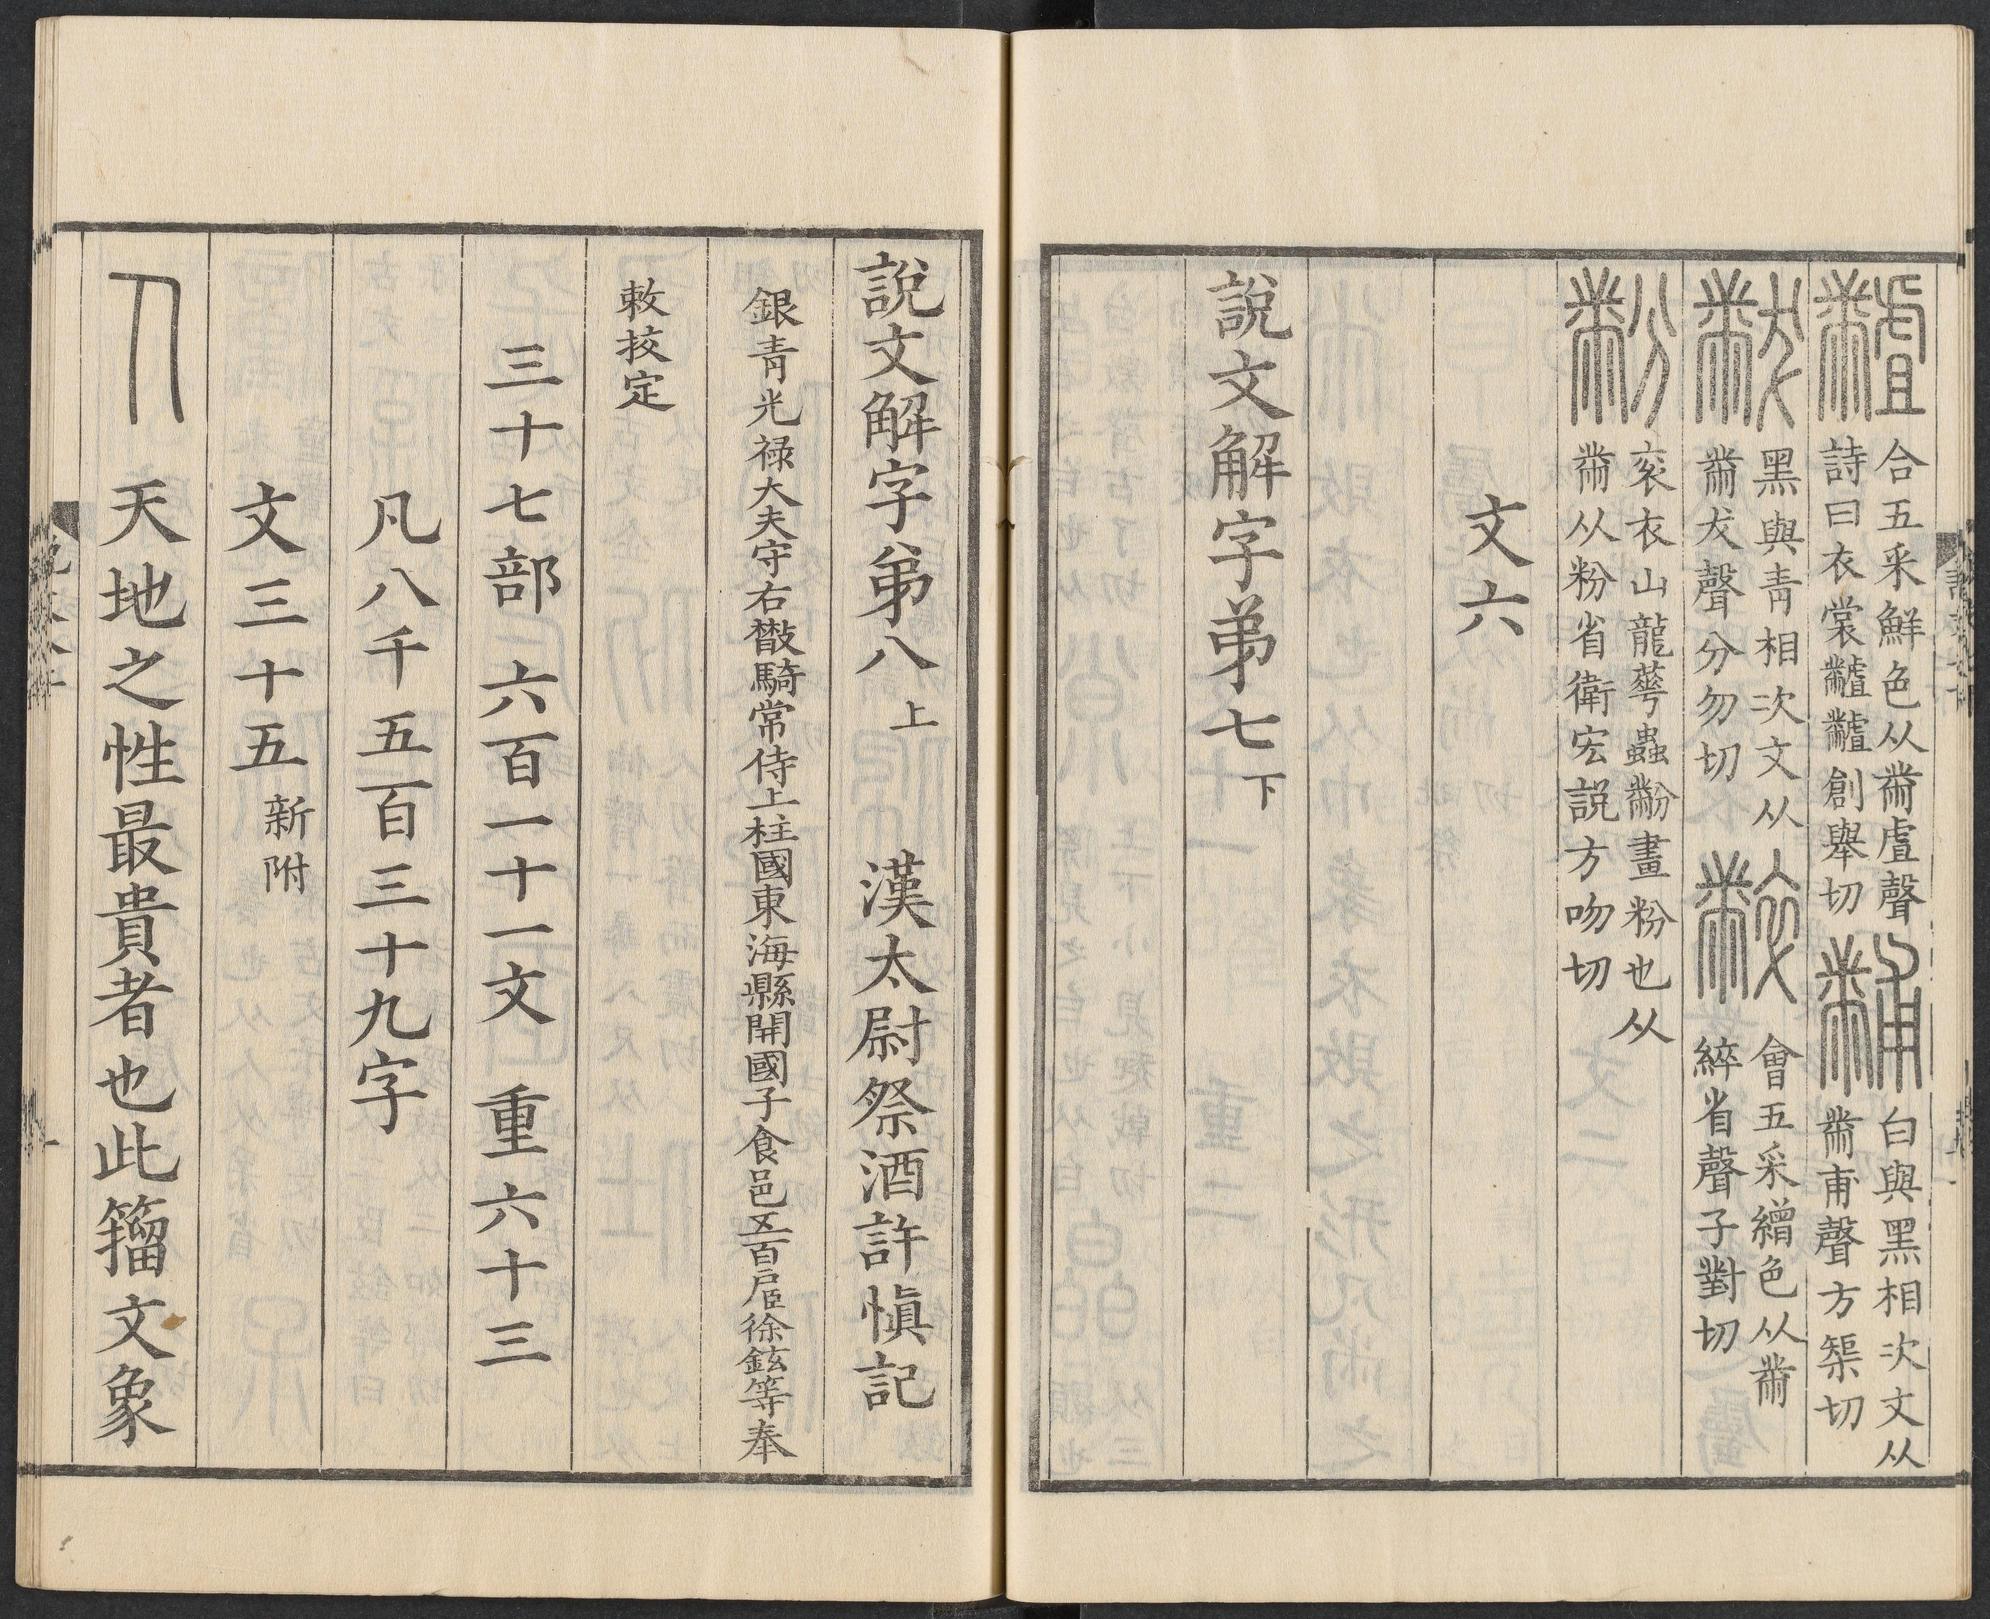 𪓐合五采鮮色从黹虘聲詩曰衣裳𪓐𪓐創舉切黼白與黑相次文从黹甫聲方榘切
黻黑與青相次文从黹犮聲分勿切𪓌會五采繒色从黹綷省聲子對切
黺衮衣山龍華蟲黺畫粉也从黹从粉省衛宏説方吻切
文六
說文解字弟七下
說文解字弟八上 漢太尉祭酒許愼記
銀青光禄大夫守右散騎常侍上柱國東海縣開國子食邑五百戶臣徐鉉等奉
敕挍定
三十七部 六百一十一文 重六十三
凡八千五百三十九字
文三十五新附
人天地之性最貴者也此籀文象